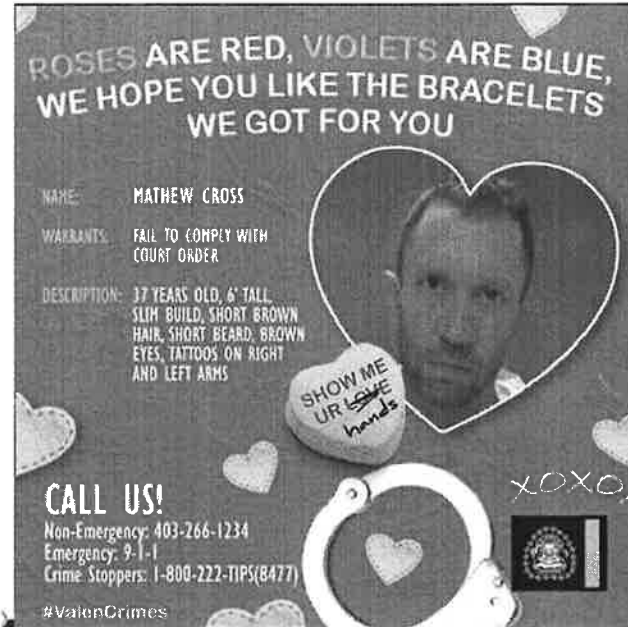 ROSES ARE RED, VIOLETS ARE BLUE,
WE HOPE YOU LIKE THE BRACELETS
WE GOT FOR YOU
NAME: MATHEW CROSS
WARRANTS: FAIL TO COMPLY WITH
COURT ORDER
DESCRIPTION: 37 YEARS OLD, 6' TALL,
SLIM BUILD, SHORT BROWN
HAIR, SHORT BEARD, BROWN
EYES, TATTOOS ON RIGHT
AND LEFT ARMS
SHOW ME
UR LOVE
hands
CALL US!
Non-Emergency: 403-266-1234
Emergency: 9-1-1
Crime Stoppers: 1-800-222-TIPS(8477)
XOXO
#ValenCrimes